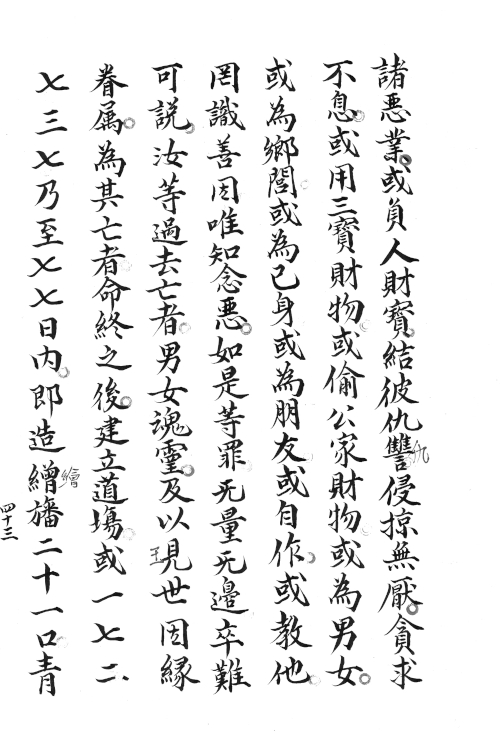 諸悪業或負人財寶結彼仇讐侵掠無厭貪求
不息或用三寶財物或偷公家財物或為男女
或為鄉閭或為己身或為朋友或自作或教他
罔識善因唯知念悪如是等罪无量无邊卒難
可説汝等過去亡者男女魂靈及以見世因緣
眷属為其亡者命終之後建立道塲或一七二
七三七乃至七七日内即造繒旛二十一口青
四十三